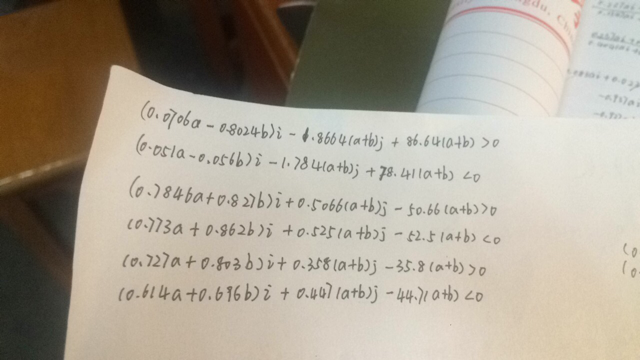 gdu, Ch
(0.0706a - 0.8024b)i - 1.8664(a+b)j + 86.64(a+b) >0
(0.051a-0.056b)i - 1.784(a+b)j + 78.41(a+b) <0
(0.7846a+0.827b)i + 0.5066(a+b)j - 50.66(a+b) >0
(0.773a + 0.862b)i + 0.525(a+b)j - 52.5(a+b) <0
(0.727a + 0.803b)i + 0.358(a+b)j - 35.8(a+b) >0
(0.614a+0.696b)i + 0.447(a+b)j - 44.7(a+b) <0